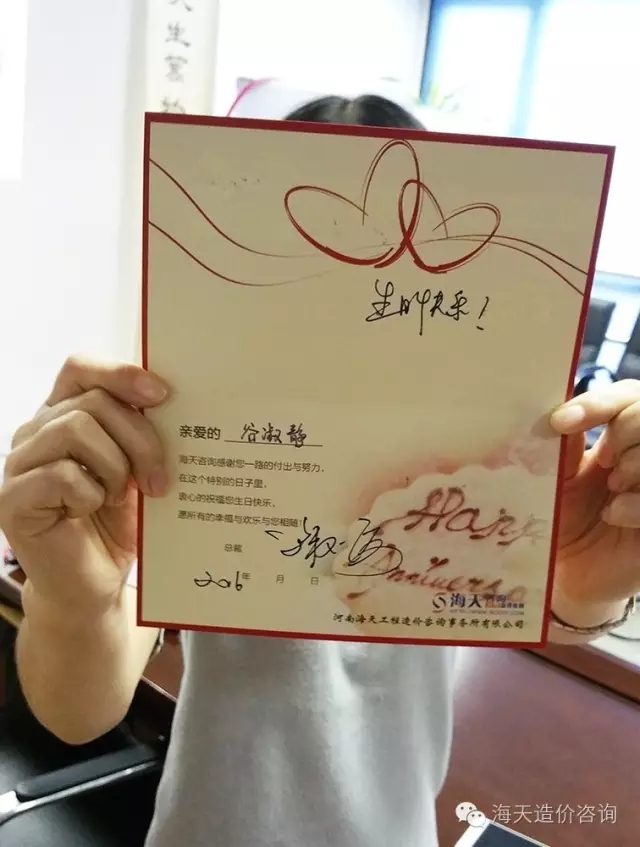 天生万物
生日快乐！
亲爱的 谷淑静
海天咨询感谢您一路的付出与努力，
在这个特别的日子里，
衷心的祝福您生日快乐，
愿所有的幸福与欢乐与您相随！
总裁
2016年 月 日
Happy
Anniversa
海天咨询
河南海天工程造价咨询事务所有限公司
海天造价咨询